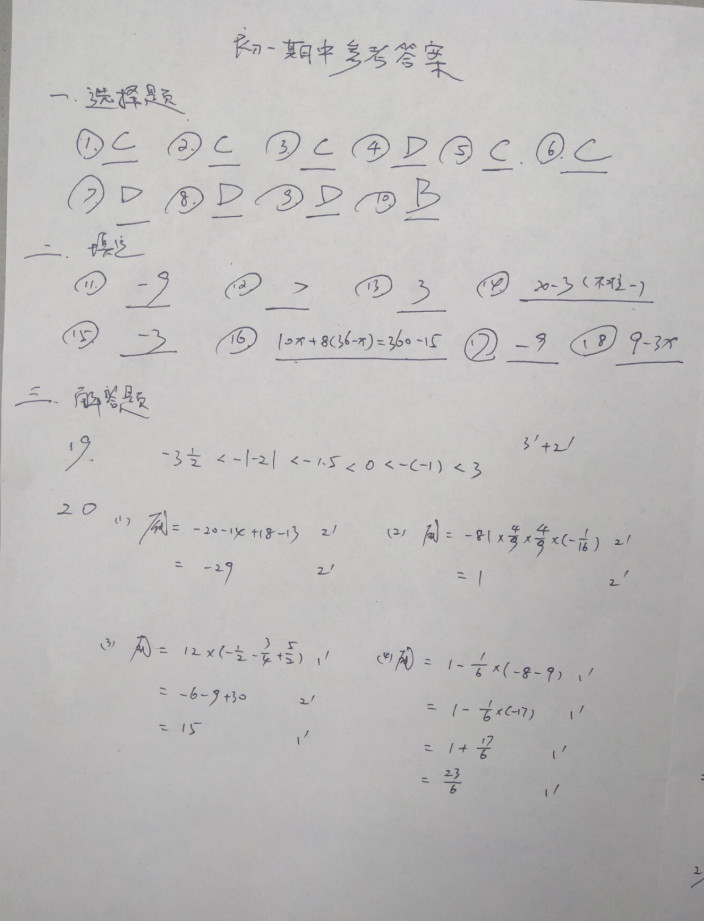 初一期中参考答案
一.选择题
①.C ②.C ③C ④D ⑤C. ⑥.C
⑦D ⑧.D ⑨D ⑩.B
二.填空
⑪.-9 ⑫> ⑬3 ⑭x-3(不唯一)
⑮-3 ⑯10x+8(36-x)=360-15 ⑰-9 ⑱9-3x
三.解答题
19. -3½<-|-2|<-1.5<0<-(-1)<3 3'+2'
20 (1)原=-20-14+18-13 2' (2)原=-81×4/9×4/9×(-1/16) 2'
=-29 2' =1 2'
(3)原=12×(-1/2-3/4+5/2) 1' (4)原=1-1/6×(-8-9) 1'
=-6-9+30 2' =1-1/6×(-17) 1'
=15 1' =1+17/6 1'
=23/6 1'